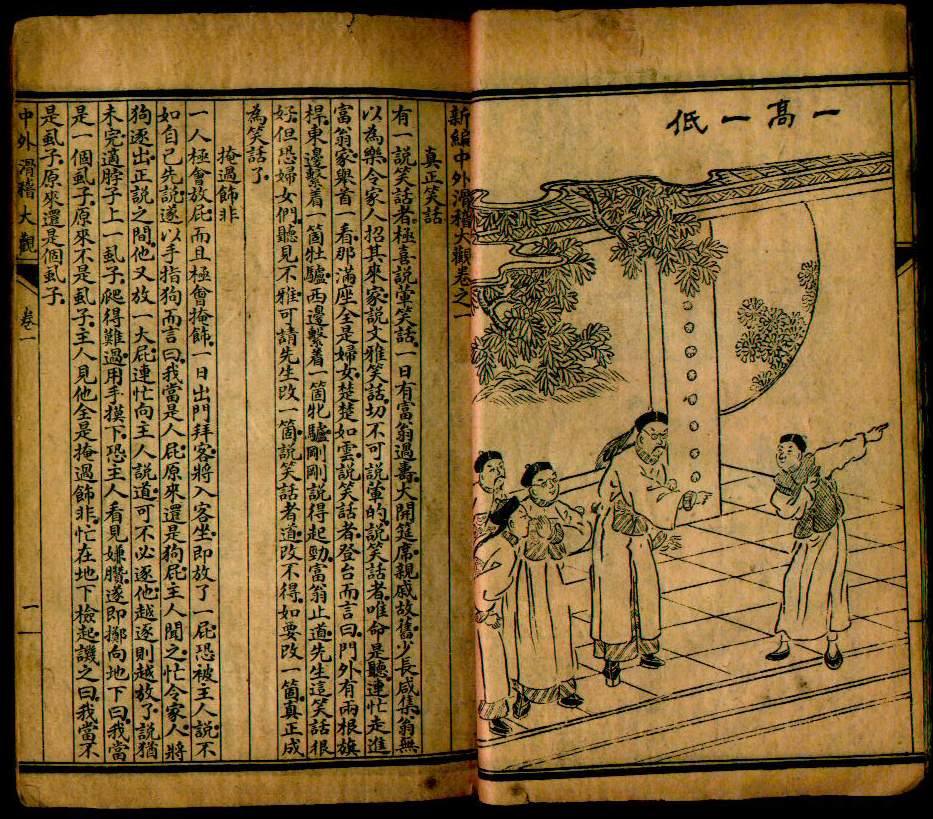 一高一低
新編中外滑稽大觀卷之一
真正笑話
有一說笑話者極喜說葷笑話一日有富翁過壽大開筵席親戚故舊少長咸集翁無
以為樂令家人招其來家說文雅笑話切不可說葷的說笑話者唯命是聽連忙走進
富翁家舉首一看那滿座全是婦女楚楚如雲說笑話者登台而言曰門外有兩根旗
桿東邊繫着一箇牡驢西邊繫着一箇牝驢剛剛說得起勁富翁止道先生這笑話很
好但恐婦女們聽見不雅可請先生改一箇說笑話者道改不得如要改 箇真正成
為笑話了
掩過飾非
一人極會放屁而且極會掩飾一日出門拜客將入客坐即放了一屁恐被主人說不
如自己先說遂以手指狗而言曰我當是人屁原來還是狗屁主人聞之忙令家人將
狗逐出正說之間他又放一大屁連忙向主人說道可不必逐他越逐則越放了說猶
未完適脖子上一虱子爬得難過用手摸下恐主人看見嫌臢遂即擲向地下曰我當
是一個虱子原來不是虱子主人見他全是掩過飾非忙在地下檢起譏之曰我當不
是虱子原來還是個虱子
中外滑稽大觀 卷一 一